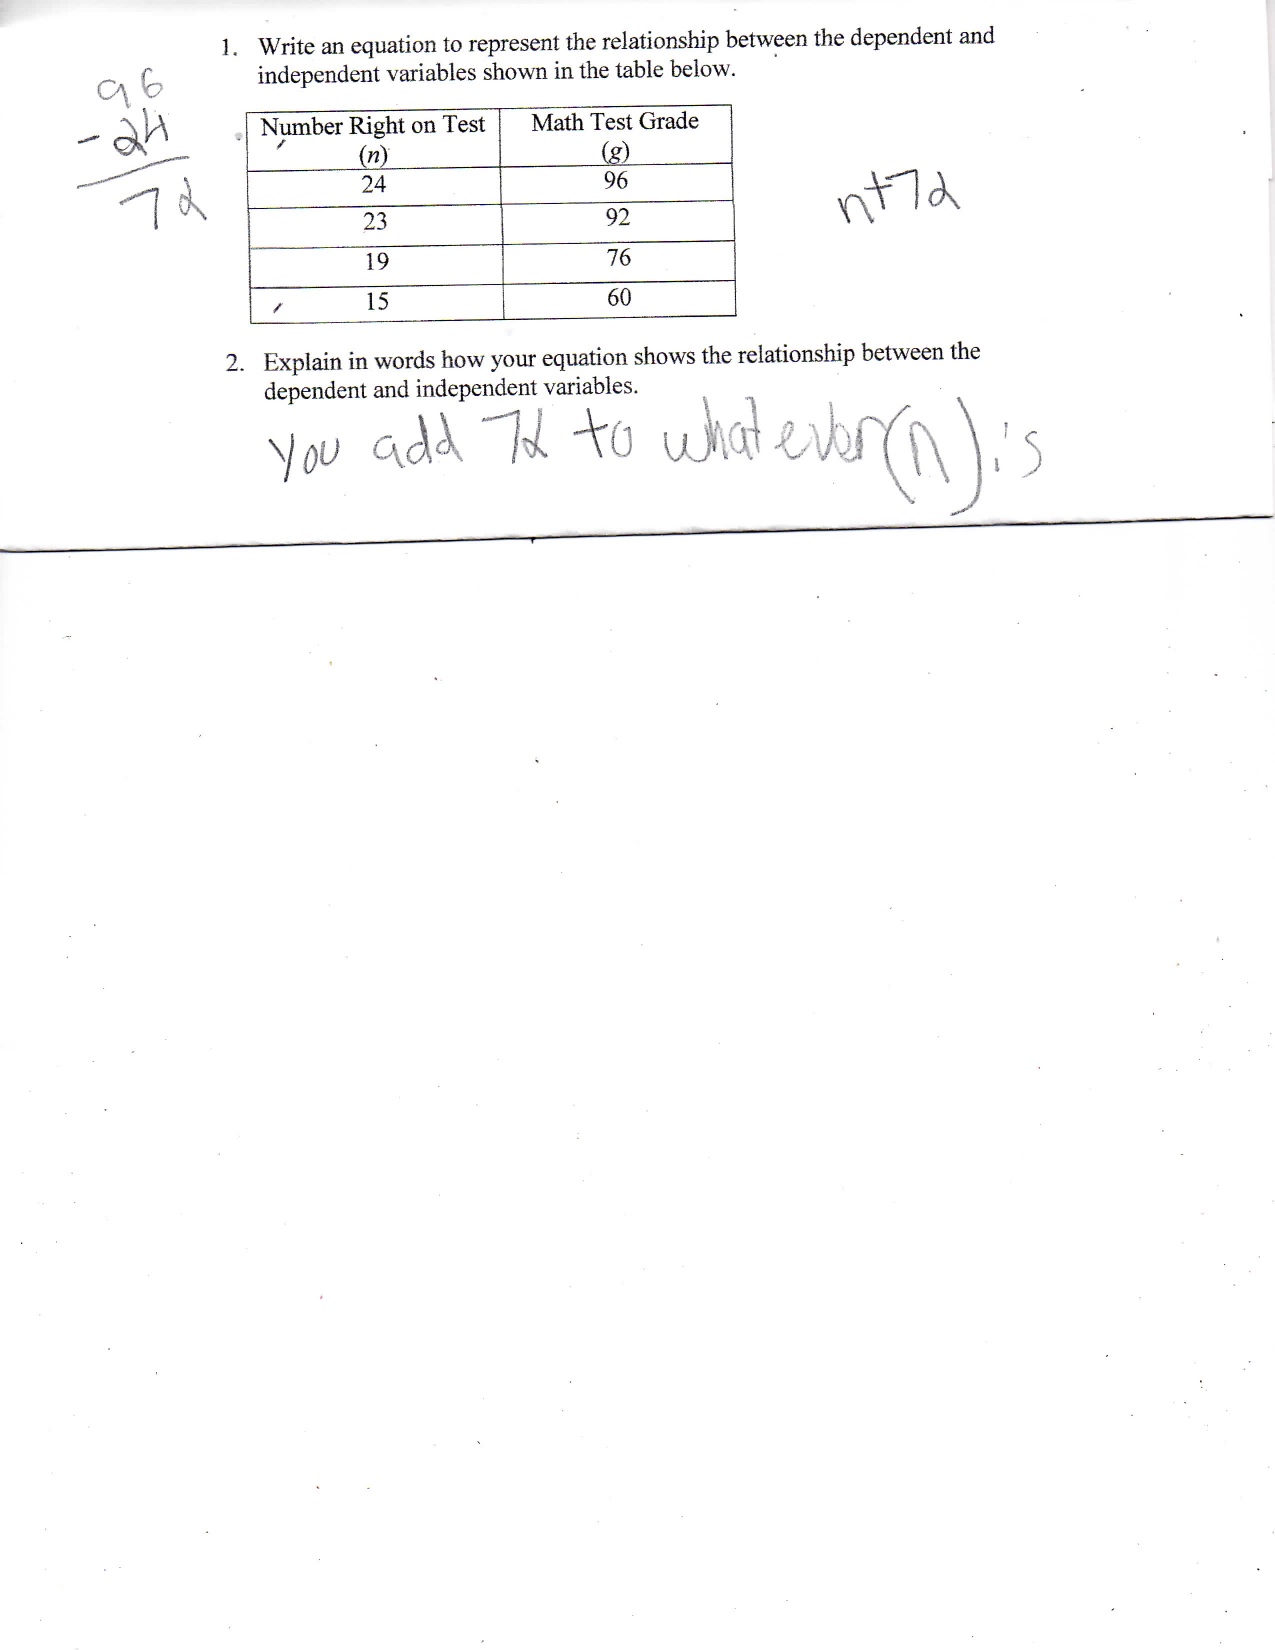 1. Write an equation to represent the relationship between the dependent and
independent variables shown in the table below.
96
-24
72
Number Right on Test Math Test Grade
(n) (g)
24 96
23 92
19 76
15 60
n+72
2. Explain in words how your equation shows the relationship between the
dependent and independent variables.
You add 72 to whatever (n) is